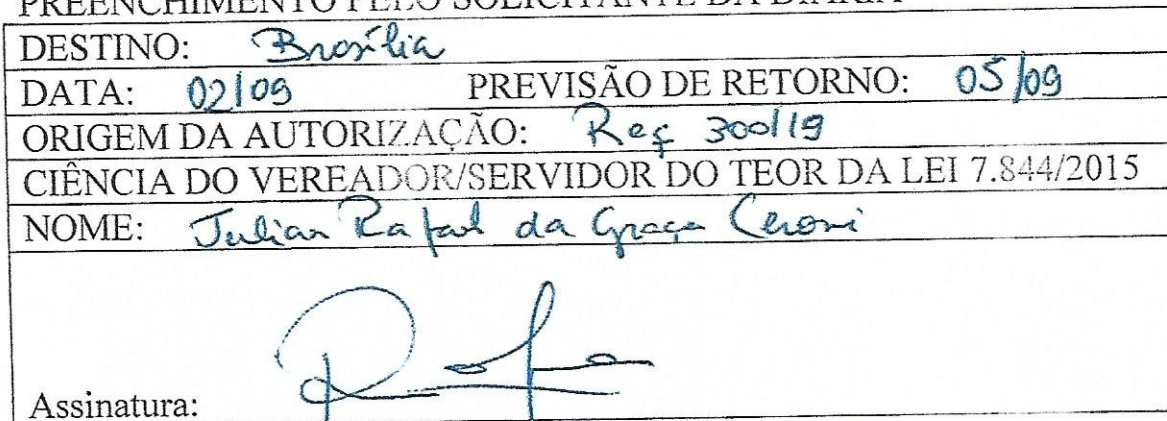 PREENCHIMENTO PELO SOLICITANTE DA DIÁRIA
DESTINO: Brasília
DATA: 02/09 PREVISÃO DE RETORNO: 05/09
ORIGEM DA AUTORIZAÇÃO: Req 300/19
CIÊNCIA DO VEREADOR/SERVIDOR DO TEOR DA LEI 7.844/2015
NOME: Julian Rafael da Graça Ceroni
Assinatura: